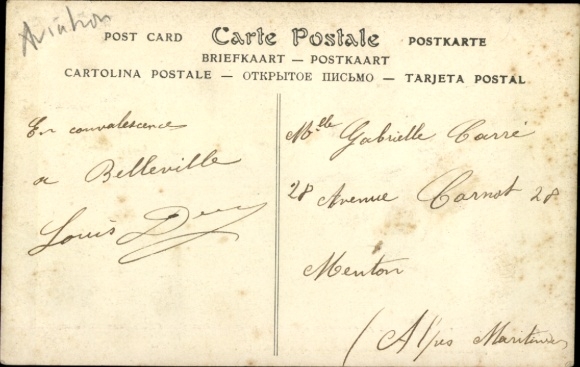 Aviation
POST CARD Carte Postale POSTKARTE
BRIEFKAART — POSTKAART
CARTOLINA POSTALE — ОТКРЫТОЕ ПИСЬМО — TARJETA POSTAL
En convalescence
a Belleville
Louis
Mlle Gabrielle Carré
28 Avenue Carnot 28
Menton
(Alpes Maritimes